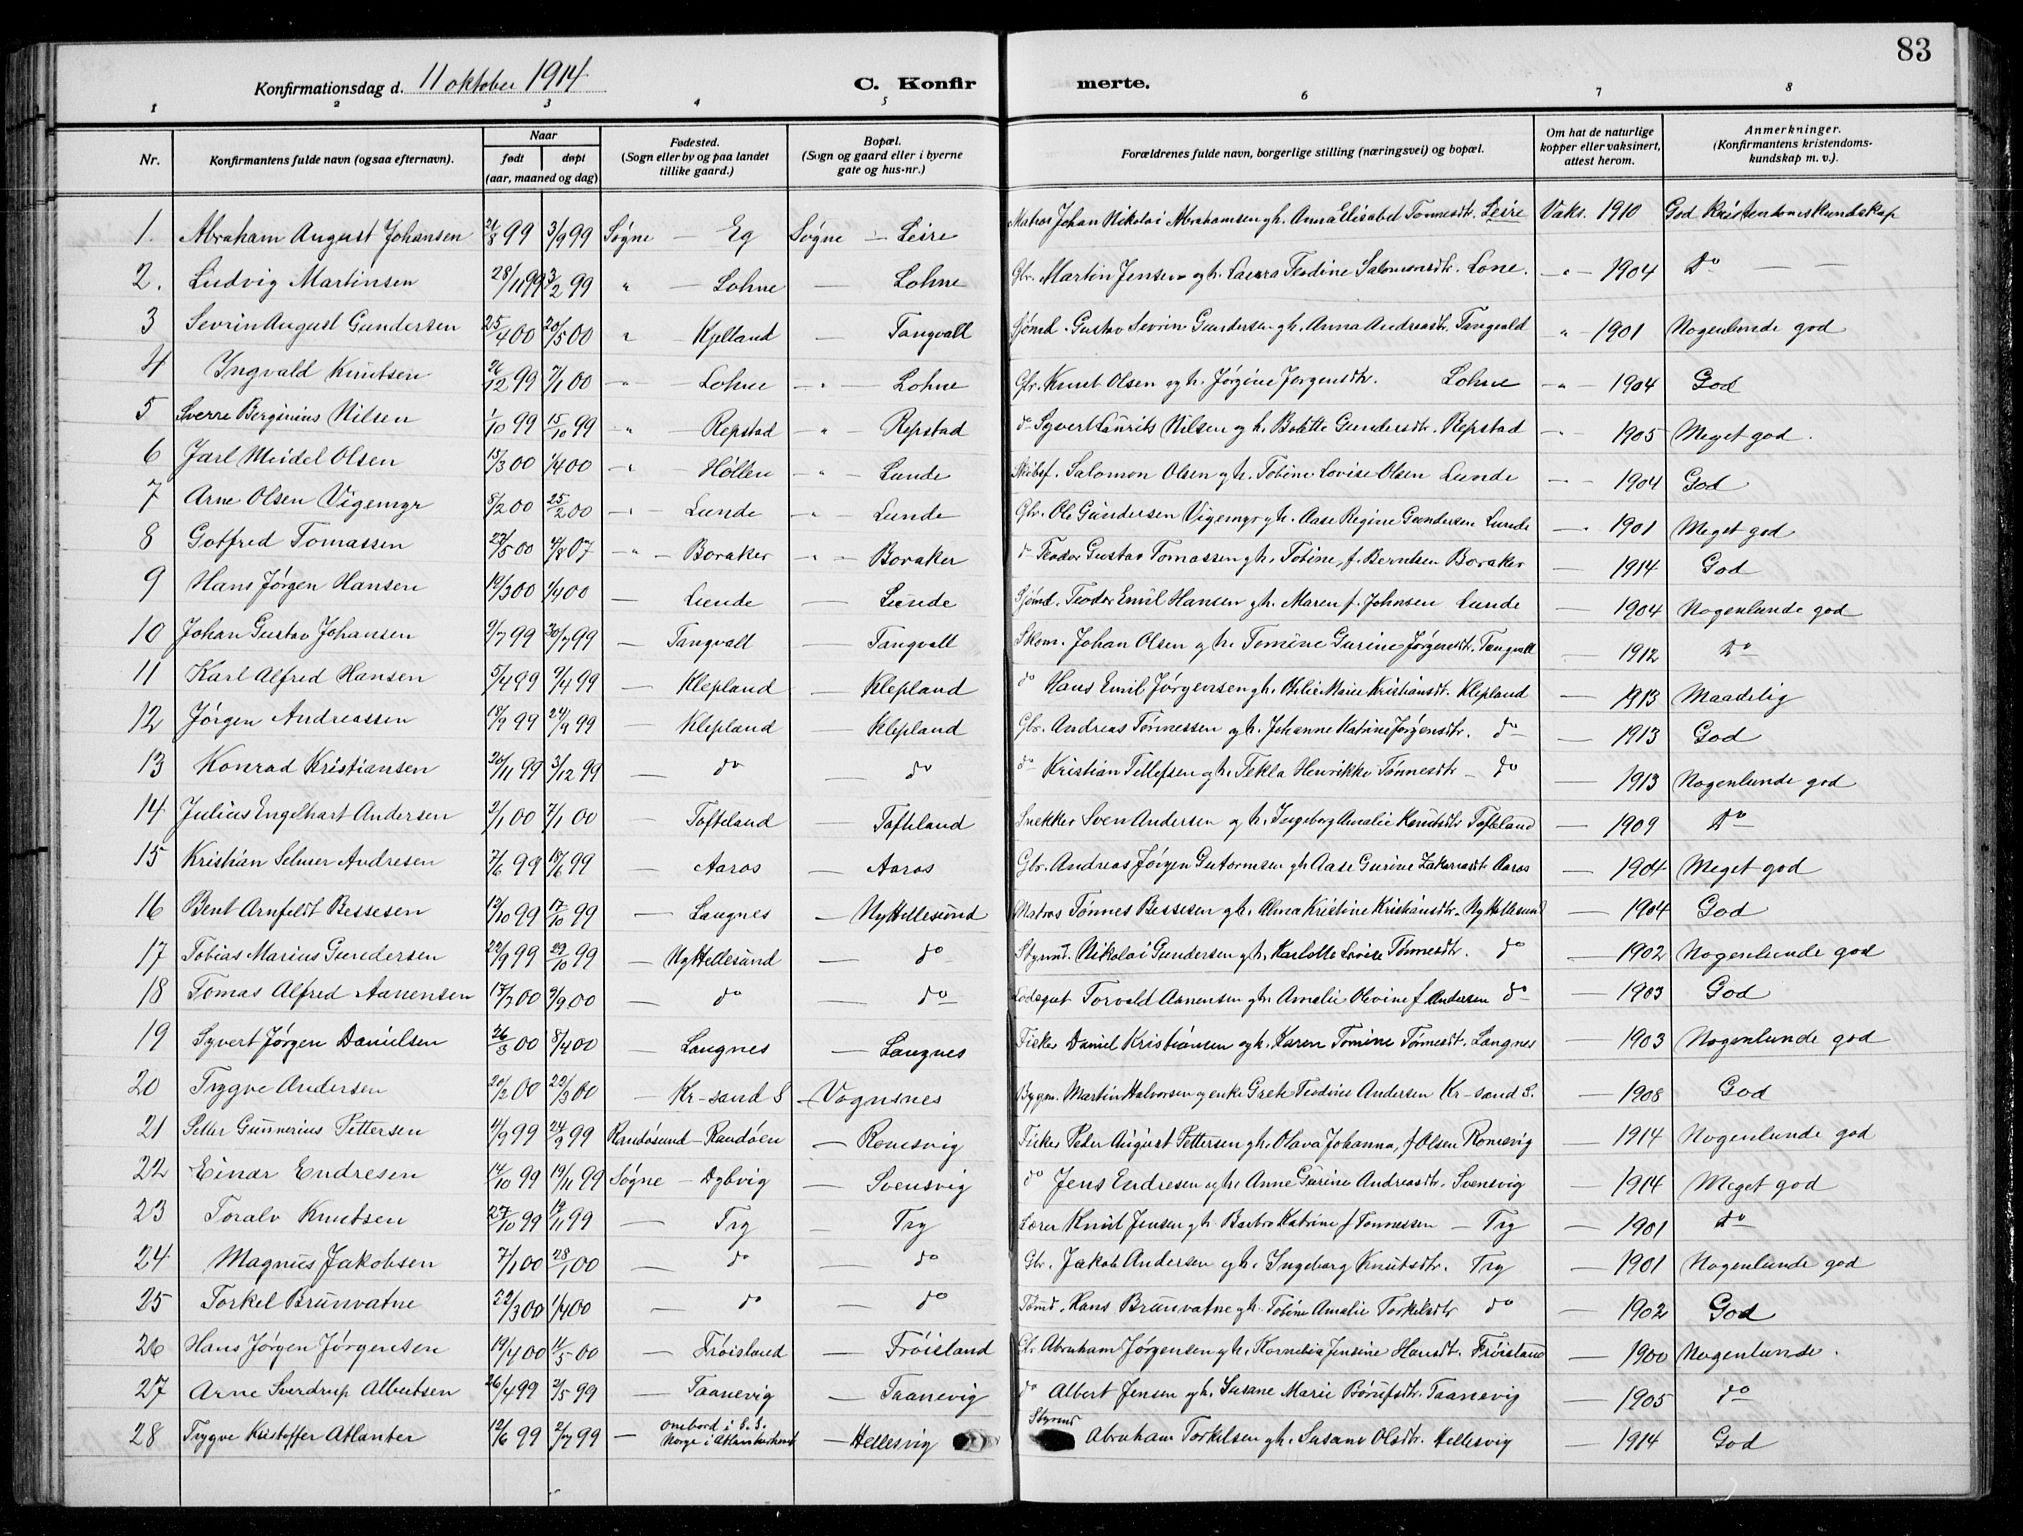 83
Konfirmationsdag d. 11 oktober 1914 C. Konfir merte.
1 2 3 4 5 6 7 8
Nr. Konfirmantens fulde navn (ogsaa efternavn). Naar født døpt (aar, maaned og dag) Fødested. (Sogn eller by og paa landet tillike gaard.) Bopæl. (Sogn og gaard eller i byerne gate og hus-nr.) Forældrenes fulde navn, borgerlige stilling (næringsvei) og bopæl. Om hat de naturlige kopper eller vaksinert, attest herom. Anmerkninger. (Konfirmantens kristendomskundskap m. v.).
1. Abraham August Johansen 21/8 99 3/9 99 Søgne – Eg Søgne – Leire Matros Johan Nikolai Abrahamsen gh. Anna Elisabet Tønnesdtr. Leire Vaks. 1910 God Kristendomskundskap
2. Ludvig Martinsen 28/1 99 3/2 99 " – Lohne – Lohne Gbr. Martin Jensen og h. Laura Teodine Salomonsdtr. Lone. – " – 1904 Do – –
3 Sevrin August Gundersen 25/4 00 20/5 00 " – Kjelland – Tangvall Sjømd. Gustav Sevrin Gundersen gh. Anna Andreasdtr. Tangvald " 1901 Nogenlunde god
4 Ingvald Knutsen 26/12 99 7/1 00 " – Lohne – " – Lohne Gbr. Knut Olsen og h. Jørgine Jørgensdtr. Lohne – " – 1904 God
5 Sverre Berginius Nilsen 1/10 99 15/10 99 " – Repstad – " Repstad do Syvert Laurits Nilsen og h. Bolette Gundersdtr. Repstad – " 1905 Meget god.
6 Jarl Meidel Olsen 13/3 00 1/4 00 " – Høllen – " Lunde Skibsf. Salomon Olsen gh. Tobine Lovise Olsen Lunde – " 1904 God
7 Arne Olsen Vigemyr 8/2 00 25/2 00 – " – Lunde – " Lunde Gbr. Ole Gundersen Vigemyr gh. Aase Regine Gundersen Lunde – " 1901 Meget god
8 Gotfred Tomassen 23/5 00 4/8 07 – " – Boraker – " Boraker do Teodor Gustav Tomassen gh. Tobine, f. Berntsen Boraker – 1914 God
9 Hans Jørgen Hansen 19/3 00 1/4 00 – Lunde – Lunde Sjømd. Teodor Emil Hansen gh. Maren f. Johnsen Lunde – 1904 Nogenlunde god
10 Johan Gustav Johansen 2/7 99 30/7 99 – Tangvall – Tangvall Skom. Johan Olsen og h. Tomine Gurine Jørgensdtr. Tangvall – 1912 Do
11 Karl Alfred Hansen 5/4 99 9/4 99 – Klepland – Klepland do Hans Emil Jørgensen gh. Otilie Marie Kristiansdt. Klepland – 1913 Maadelig
12 Jørgen Andreassen 18/9 99 24/9 99 – Klepland – Klepland Gbr. Andreas Tønnessen og h. Johanne Katrine Jørgensdtr. do – 1913 God
13 Konrad Kristiansen 26/11 99 3/12 99 – do – do do Kristian Tellefsen gh. Tekla Henrikke Tønnesdtr – do – 1913 Nogenlunde god
14 Julius Engelhart Andersen 2/1 00 7/1 00 – Tofteland – Tofteland Snekker Sven Andersen og h. Ingeborg Amalie Knutsdtr Tofteland – 1909 Do
15 Kristian Selmer Andresen 7/6 99 18/6 99 – Aaros – Aaros Gbr. Andreas Jørgen Gutormsen gh. Aase Gurine Zakariasdtr Aaros – 1904 Meget god
16 Bent Arnfeldt Bessesen 12/10 99 17/10 99 – Langnes – Ny Hellesund Matros Tønnes Bessesen gh. Alma Kristine Kristiansdtr. Ny Hellesund – 1904 God
17 Tobias Marius Gundersen 22/9 99 29/10 99 – Ny Hellesund – do Styrmd. Nikolai Gundersen gh. Karlotte Lovise Tønnesdtr. do – 1902 Nogenlunde god
18 Tomas Alfred Aanensen 17/7 00 9/9 00 – do – do Lodsgut Torvald Aanensen gh. Amalie Olevine f. Andersen do – 1903 God
19 Syvert Jørgen Danielsen 26/3 00 8/4 00 – Langnes – Langnes Fisker Daniel Kristiansen og h. Karen Tomine Tønnesdt. Langnes – 1903 Nogenlunde god
20 Trygve Andersen 20/2 00 22/3 00 – Kr-sand S – Vognsnes Bygm. Martin Halvorsen g enke Grete Teodine Andersen Kr-sand S. – 1908 God
21 Peter Gunnerius Pettersen 4/9 99 24/9 99 Randøsund – Randøen – Romsvig Fisker Peder August Pettersen gh. Olava Johanna, f. Olsen Romsvig – 1914 Nogenlunde god
22 Einar Endresen 14/10 99 19/11 99 Søgne – Dybvig – Svensvig do Jens Endresen og h. Anne Gurine Andreasdtr. Svensvig – 1914 Meget god
23 Toralv Knutsen 27/10 99 19/11 99 – Try – Try Lærer Knut Jensen gh. Barbro Katrine f. Tønnessen – Try – 1901 do
24 Magnus Jakobsen 7/1 00 28/1 00 – do – do Gbr. Jakob Andersen og h. Ingeborg Knutsdtr. Try – 1901 Nogenlunde god
25 Torkel Brunvatne 22/3 00 1/4 00 – do – do Tømd. Hans Brunvatne gh. Tobine Amalie Torkelsdtr do – 1902 God
26 Hans Jørgen Jørgensen 19/4 00 11/5 00 – Frøisland – Frøisland Gbr. Abraham Jørgensen gh. Kornelia Jensine Hansdt. Frøisland – 1900 Nogenlunde.
27 Arne Sverdrup Albertsen 26/4 99 2/5 99 – Taanevig – Taanevig do Albert Jensen gh. Susane Marie Børufsdtr. Taanevig – 1905 do
28 Trygve Kristoffer Atlanter 12/6 99 2/7 99 – ombord i S.S. Norge i Atlanterhavet – Hellesvig Styrmd Abraham Torkelsen gh. Susane Olsdtr. Hellesvig – 1914 God